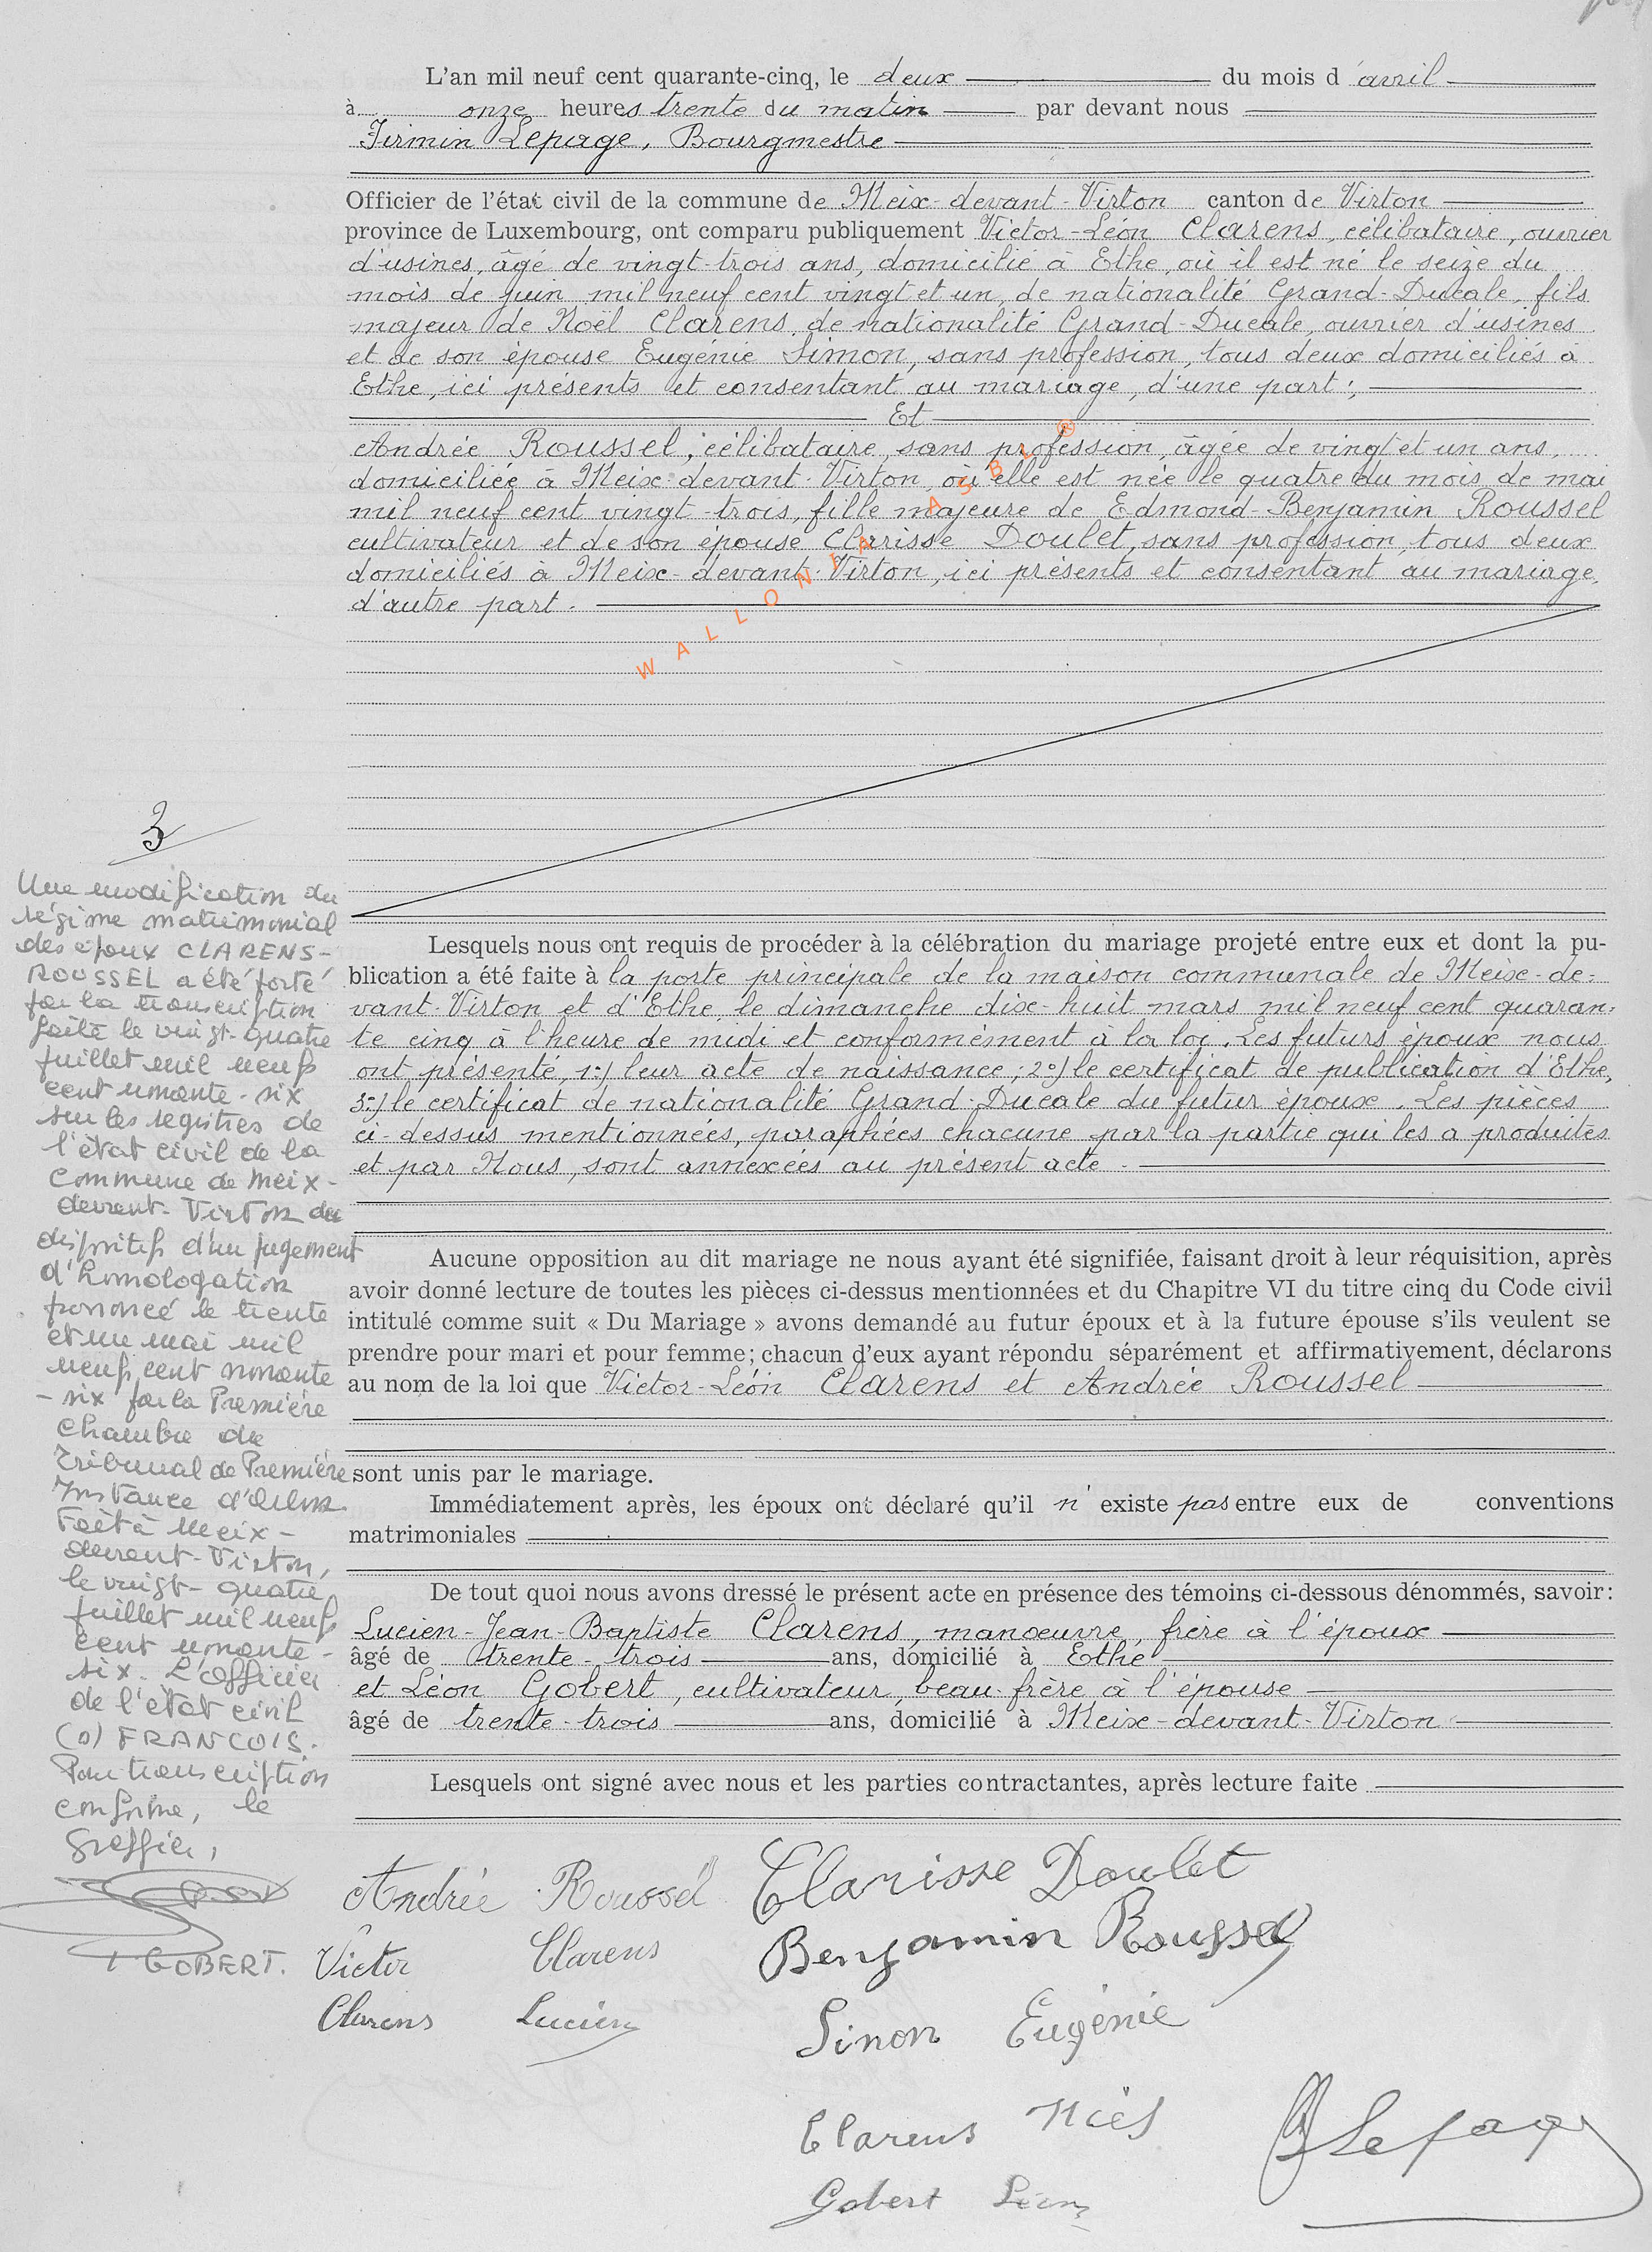 L'an mil neuf cent quarante-cinq, le deux du mois d'avril
à onze heures trente du matin par devant nous
Firmin Lepage, Bourgmestre
Officier de l'état civil de la commune de Meix-devant-Virton canton de Virton
province de Luxembourg, ont comparu publiquement Victor-Léon Clarens, célibataire, ouvrier
d'usines, âgé de vingt-trois ans, domicilié à Ethe, où il est né le seize du
mois de juin mil neuf cent vingt et un, de nationalité Grand-Ducale, fils
majeur de Noël Clarens, de nationalité Grand-Ducale, ouvrier d'usines
et de son épouse Eugénie Simon, sans profession, tous deux domiciliés à
Ethe, ici présents et consentant au mariage, d'une part;
Et
Andrée Roussel, célibataire, sans profession, âgée de vingt et un ans,
domiciliée à Meix-devant-Virton, où elle est née le quatre du mois de mai
mil neuf cent vingt-trois, fille majeure de Edmond-Benjamin Roussel
cultivateur et de son épouse Clarisse Doulet, sans profession, tous deux
domiciliés à Meix-devant-Virton, ici présents et consentant au mariage,
d'autre part.
WALLONIA ASBL ®
3
Une modification du
régime matrimonial
des époux CLARENS-
ROUSSEL a été porté
par la transcription
faite le vingt-quatre
juillet mil neuf
cent nonante-six
sur les registres de
l'état civil de la
commune de Meix-
devant-Virton du
dispositif d'un jugement
d'homologation
prononcé le trente
et un mai mil
neuf cent nonante
-six par la Première
Chambre du
Tribunal de Première
Instance d'Arlon.
Fait à Meix-
devant-Virton,
le vingt-quatre
juillet mil neuf
cent nonante-
six. L'Officier
de l'état civil
(s) FRANCOIS.
Pour transcription
conforme, le
Greffier,
GOBERT.
Lesquels nous ont requis de procéder à la célébration du mariage projeté entre eux et dont la pu-
blication a été faite à la porte principale de la maison communale de Meix-de-
vant-Virton et d'Ethe, le dimanche dix-huit mars mil neuf cent quaran-
te cinq à l'heure de midi et conformément à la loi. Les futurs époux nous
ont présenté, 1°) leur acte de naissance; 2°) le certificat de publication d'Ethe,
3°) le certificat de nationalité Grand-Ducale du futur époux. Les pièces
ci-dessus mentionnées, paraphées chacune par la partie qui les a produites
et par Nous, sont annexées au présent acte.
Aucune opposition au dit mariage ne nous ayant été signifiée, faisant droit à leur réquisition, après
avoir donné lecture de toutes les pièces ci-dessus mentionnées et du Chapitre VI du titre cinq du Code civil
intitulé comme suit « Du Mariage » avons demandé au futur époux et à la future épouse s'ils veulent se
prendre pour mari et pour femme; chacun d'eux ayant répondu séparément et affirmativement, déclarons
au nom de la loi que Victor-Léon Clarens et Andrée Roussel
sont unis par le mariage.
Immédiatement après, les époux ont déclaré qu'il n'existe pas entre eux de conventions
matrimoniales
De tout quoi nous avons dressé le présent acte en présence des témoins ci-dessous dénommés, savoir:
Lucien-Jean-Baptiste Clarens, manœuvre, frère à l'époux
âgé de trente-trois ans, domicilié à Ethe
et Léon Gobert, cultivateur, beau-frère à l'épouse
âgé de trente-trois ans, domicilié à Meix-devant-Virton
Lesquels ont signé avec nous et les parties contractantes, après lecture faite
Andrée Roussel Clarisse Doulet
Victor Clarens Benjamin Roussel
Clarens Lucien Simon Eugénie
Clarens Noël Lepage
Gobert Léon